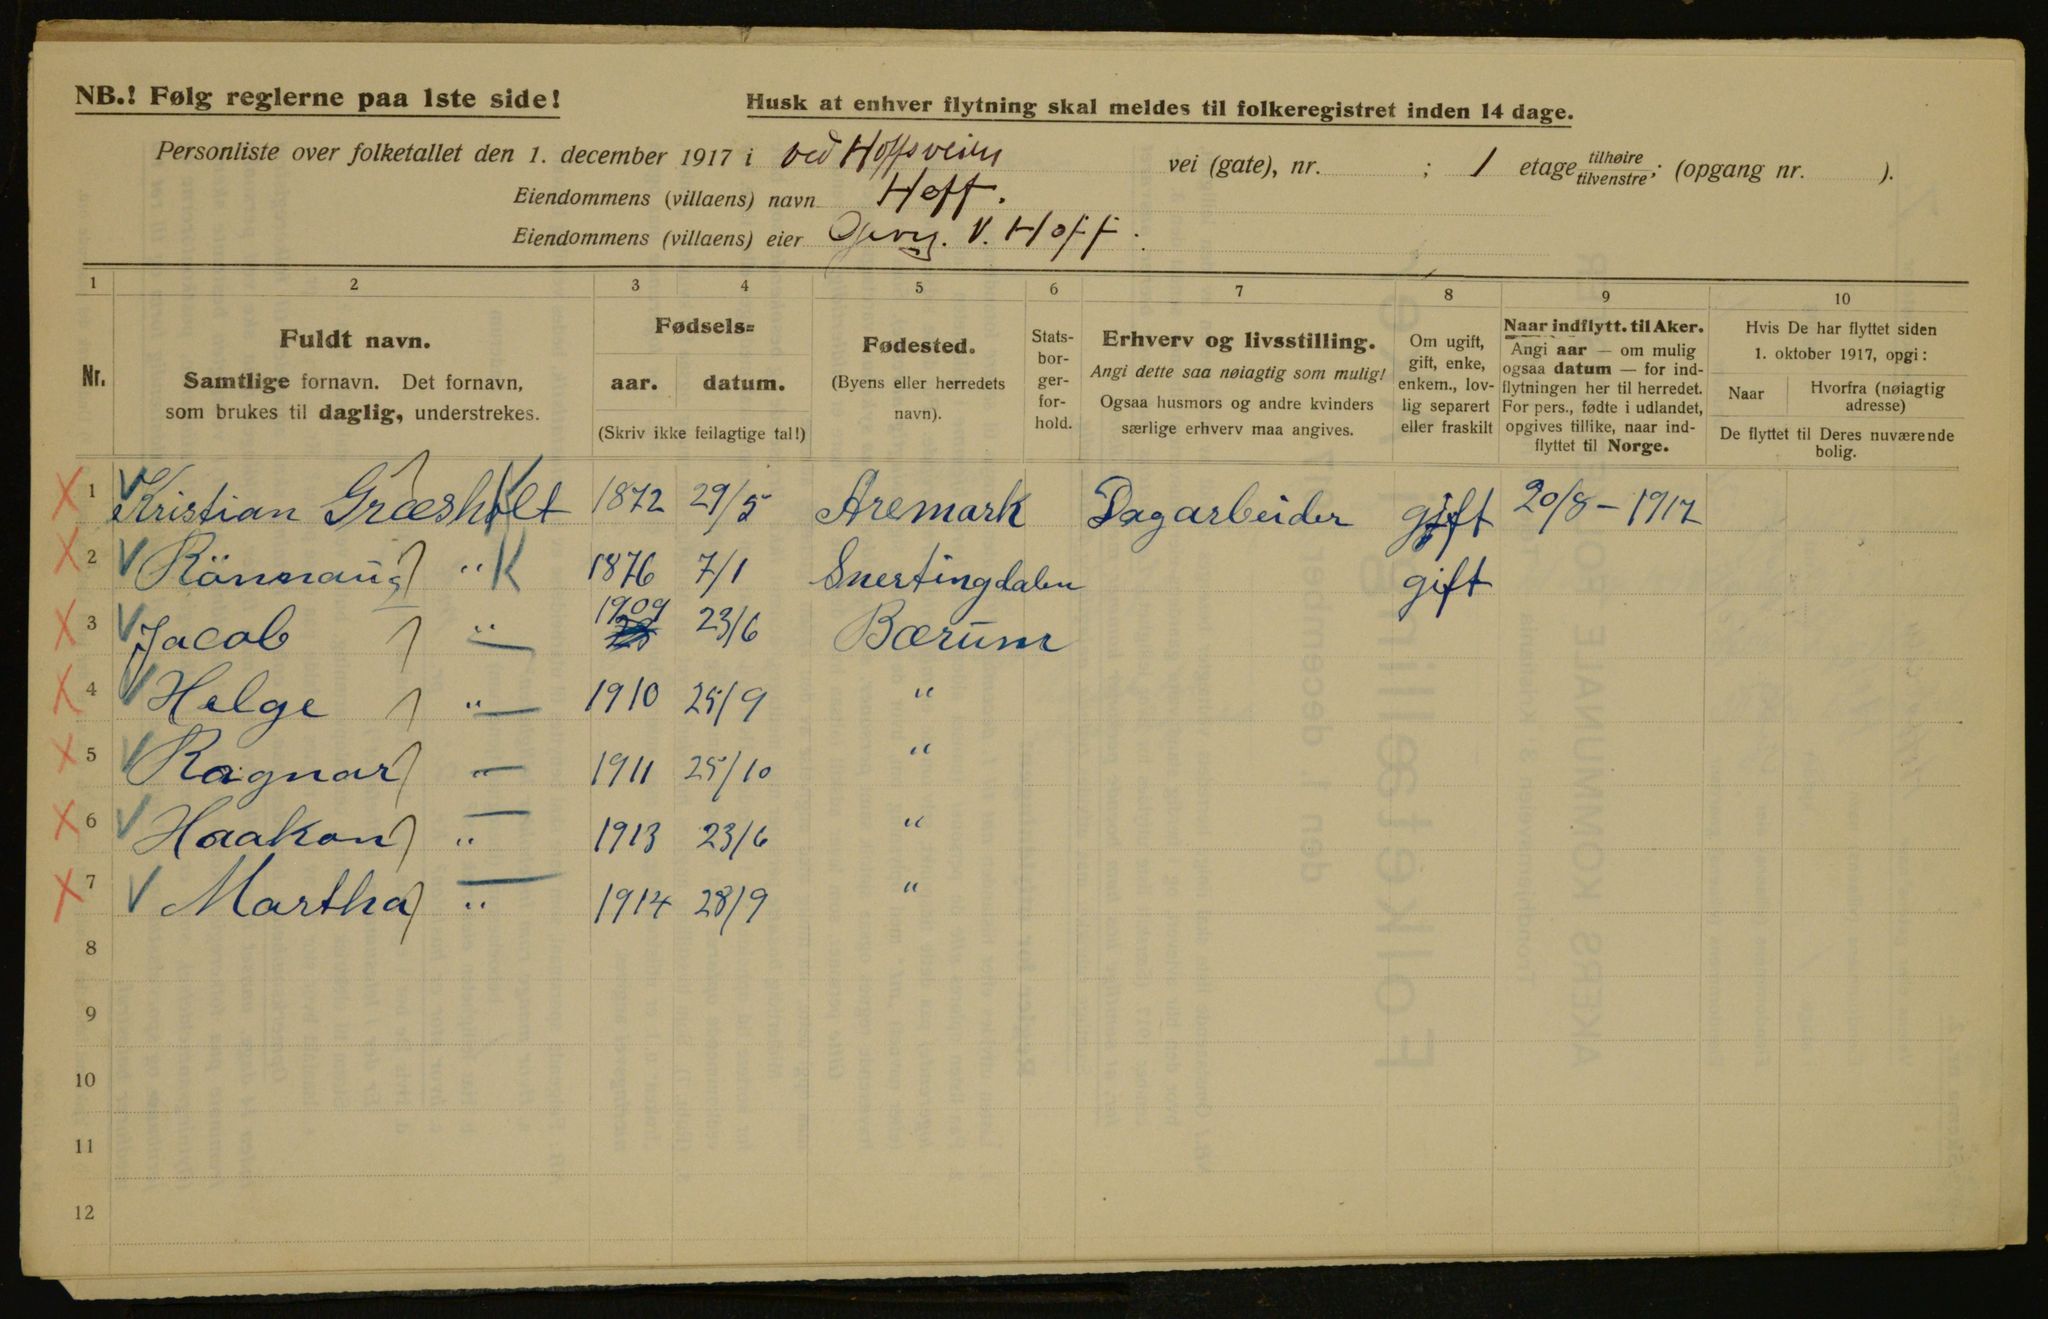 NB.! Følg reglerne paa 1ste side!
Husk at enhver flytning skal meldes til folkeregistret inden 14 dage.
Personliste over folketallet den 1. december 1917 i ved Hoffsveien vei (gate), nr. ; 1 etage tilhøire tilvenstre; (opgang nr. ).
Eiendommens (villaens) navn Hoff.
Eiendommens (villaens) eier V. Hoff.
1 2 3 4 5 6 7 8 9 10
Nr.
Fuldt navn.
Samtlige fornavn. Det fornavn,
som brukes til daglig, understrekes.
Fødsels=
aar. datum.
(Skriv ikke feilagtige tal!)
Fødested.
(Byens eller herredets
navn).
Stats-
bor-
ger-
for-
hold.
Erhverv og livsstilling.
Angi dette saa nøiagtig som mulig!
Ogsaa husmors og andre kvinders
særlige erhverv maa angives.
Om ugift,
gift, enke,
enkem., lov-
lig separert
eller fraskilt
Naar indflytt. til Aker.
Angi aar — om mulig
ogsaa datum — for ind-
flytningen her til herredet.
For pers., fødte i udlandet,
opgives tillike, naar ind-
flyttet til Norge.
Hvis De har flyttet siden
1. oktober 1917, opgi:
Naar
Hvorfra (nøiagtig
adresse)
De flyttet til Deres nuværende
bolig.
1 Kristian Græsholt 1872 29/5 Aremark Dagarbeider gift 20/8 - 1917
2 Rönnaug " K 1876 7/1 Snertingdalen gift
3 Jacob " 1909 23/6 Bærum
4 Helge " 1910 25/9 "
5 Ragnar " 1911 25/10 "
6 Haakon " 1913 23/6 "
7 Martha " 1914 28/9 "
8
9
10
11
12